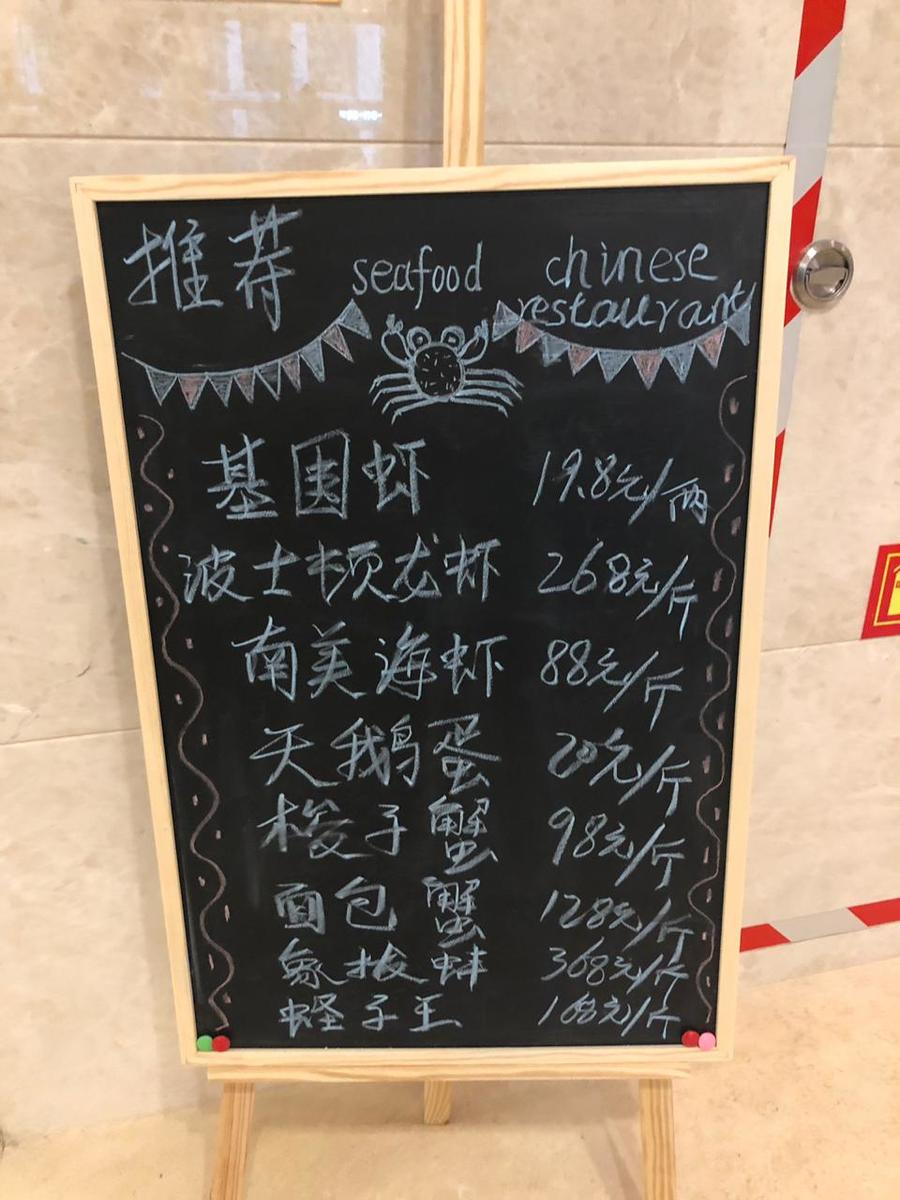 推荐 seafood chinese restaurant
基围虾 19.8元/两
波士顿龙虾 268元/斤
南美海虾 88元/斤
天鹅蛋 20元/斤
梭子蟹 98元/斤
面包蟹 128元/斤
象拔蚌 368元/斤
蛏子王 168元/斤